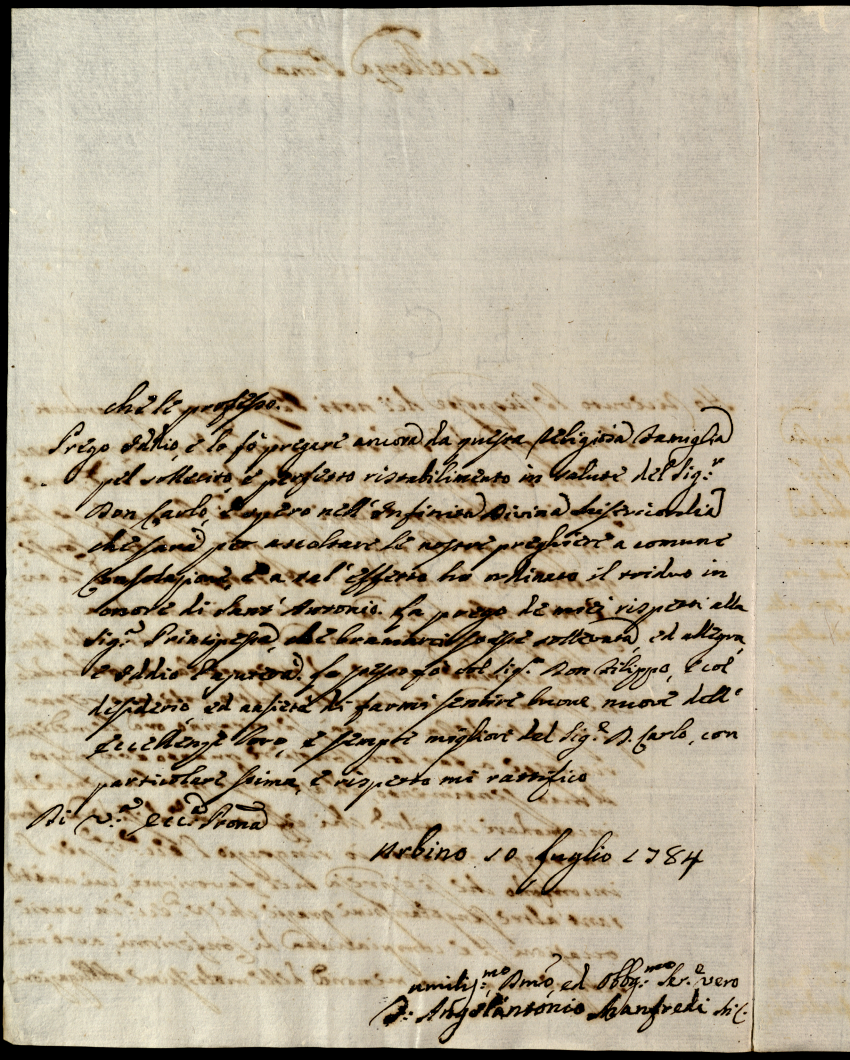 che le professo.
Prego Iddio, e lo fò pregare ancora da questa religiosa Famiglia
pel sollecito, e perfetto ristabilimento in salute del Sig.r
Don Carlo, e spero nell' Infinita Divina Misericordia
che sarà per ascoltare le nostre preghiere a comune
Consolazione, e a tal' effetto ho ordinato il triduo in
onore di Sant' Antonio. La prego de miei rispetti alla
Sig.ra Principessa, che bramarei fosse sollevata, ed allegra,
e Iddio l'aiuterà. Lo stesso fò col Sig.r Don Filippo, e col
desiderio, ed ansietà di farmi sentire buone nuove dell'
Eccellenze Loro, e sempre migliori del Sig.r D. Carlo, con
particolare stima, e rispetto mi rattifico
Di V.ra Ecc.a Prona
Urbino 10 Luglio 1784
umilis.mo Dmo, ed Obbg.mo Ser.e vero
D. Angelantonio Manfredi